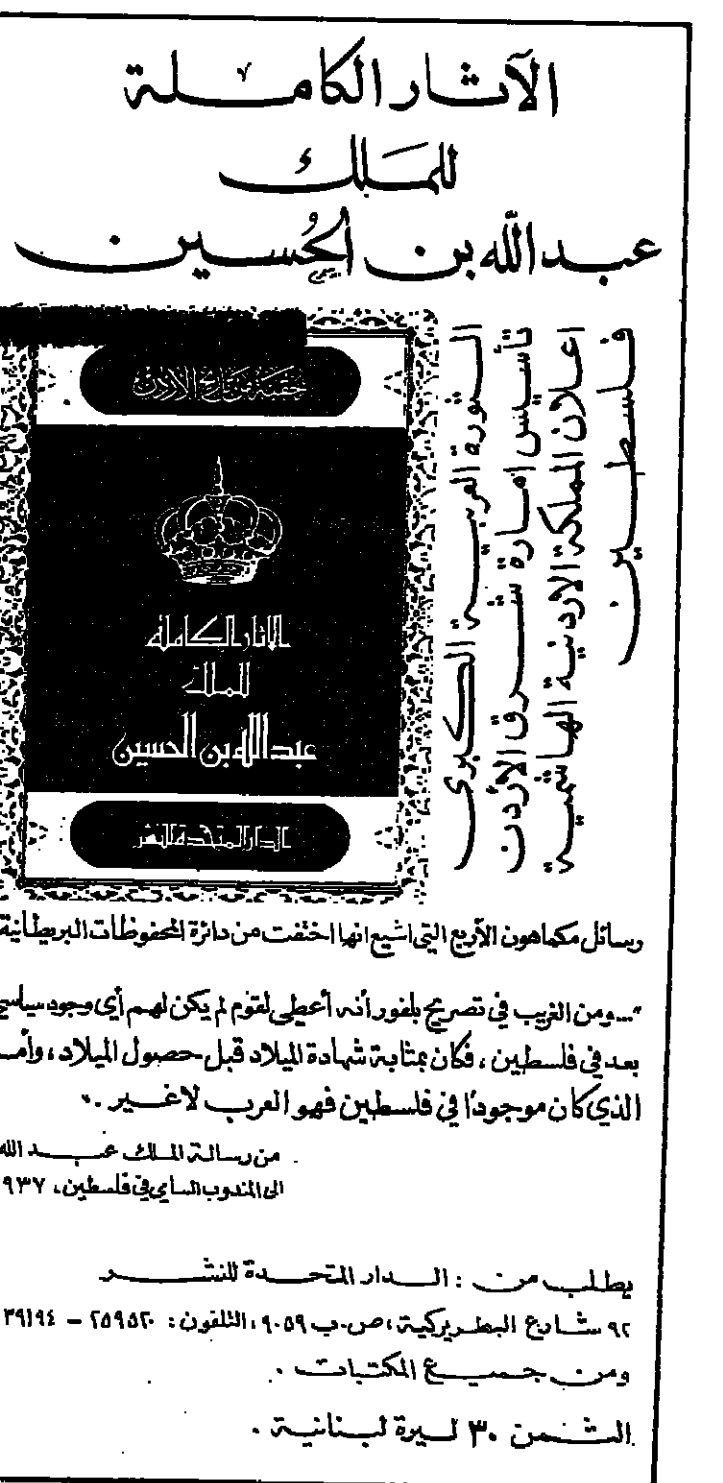 الآثار الكاملة
للملك
عبد الله بن الحسين
الثورة العربية الكبرى
تأسيس امارة شرق الأردن
اعلان المملكة الاردنية الهاشمية
فلسطين
حقبة من تاريخ الأردن
الاثار الكاملة
للملك
عبد الله بن الحسين
الدار المتحدة للنشر
رسائل مكماهون الأربع التي اشيع انها اختفت من دائرة المحفوظات البريطانية
"...ومن الغريب في تصريح بلفور أنه أعطي لقوم لم يكن لهم أي وجود سياسي
بعد في فلسطين، فكان بمثابة شهادة الميلاد قبل حصول الميلاد، وأمـ
الذي كان موجودًا في فلسطين فهو العرب لا غير."
من رسالة الملك عبد الله
الى المندوب السامي في فلسطين، ٩٣٧
يطلب من : الدار المتحدة للنشر
٩٢ شارع البطريركية، ص.ب ٩٠٥٩، التلفون: ٢٥٩٥٢٠ – ٣٩١٩٤
ومن جميع المكتبات .
الثمن ٣٠ ليرة لبنانية .